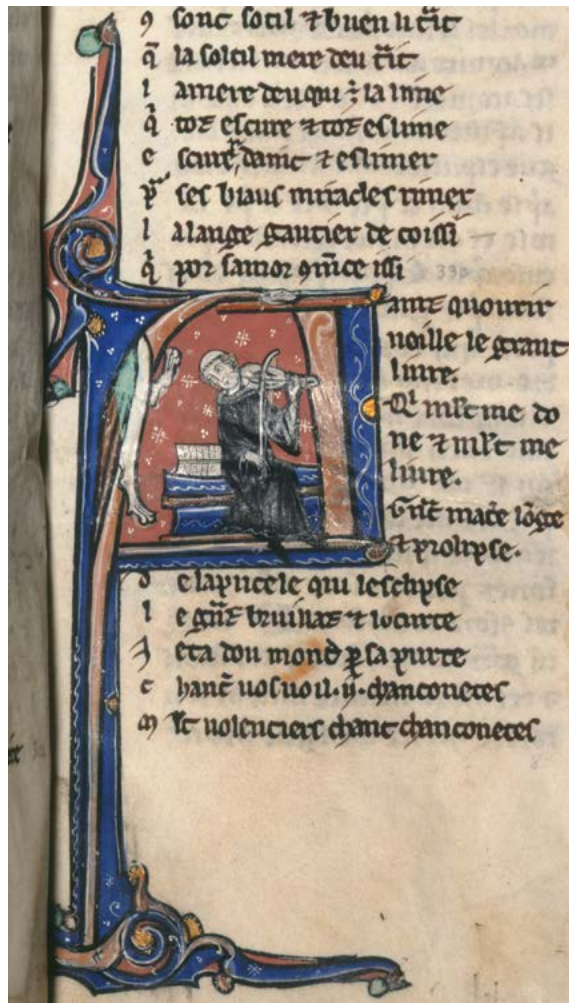 ꝯ sont sotil ⁊ buen li
q̃ la soleil mere deu
l amere deu qui ÷ la lune
q̃ tot escure ⁊ tot eslume
e scure danie ⁊ eslumer
p ses biaus miracles rimer
l alange gautier de coissi
q̃ por samor ꝯm̃ce issi 330
ainz quourir
uoille le grant
liure.
Q̃ mlt me do
ne ⁊ mlt me
liure.
G̃nt mate lõge
et prolipse.
d e lapucele qui lesclypse
l e gnt bruillaz ⁊ locurte
J eta dou monde ꝑ sa purte
c hant̃ uos uoil ·ii· chanconetes
m lt uolentiers chant chanconetes